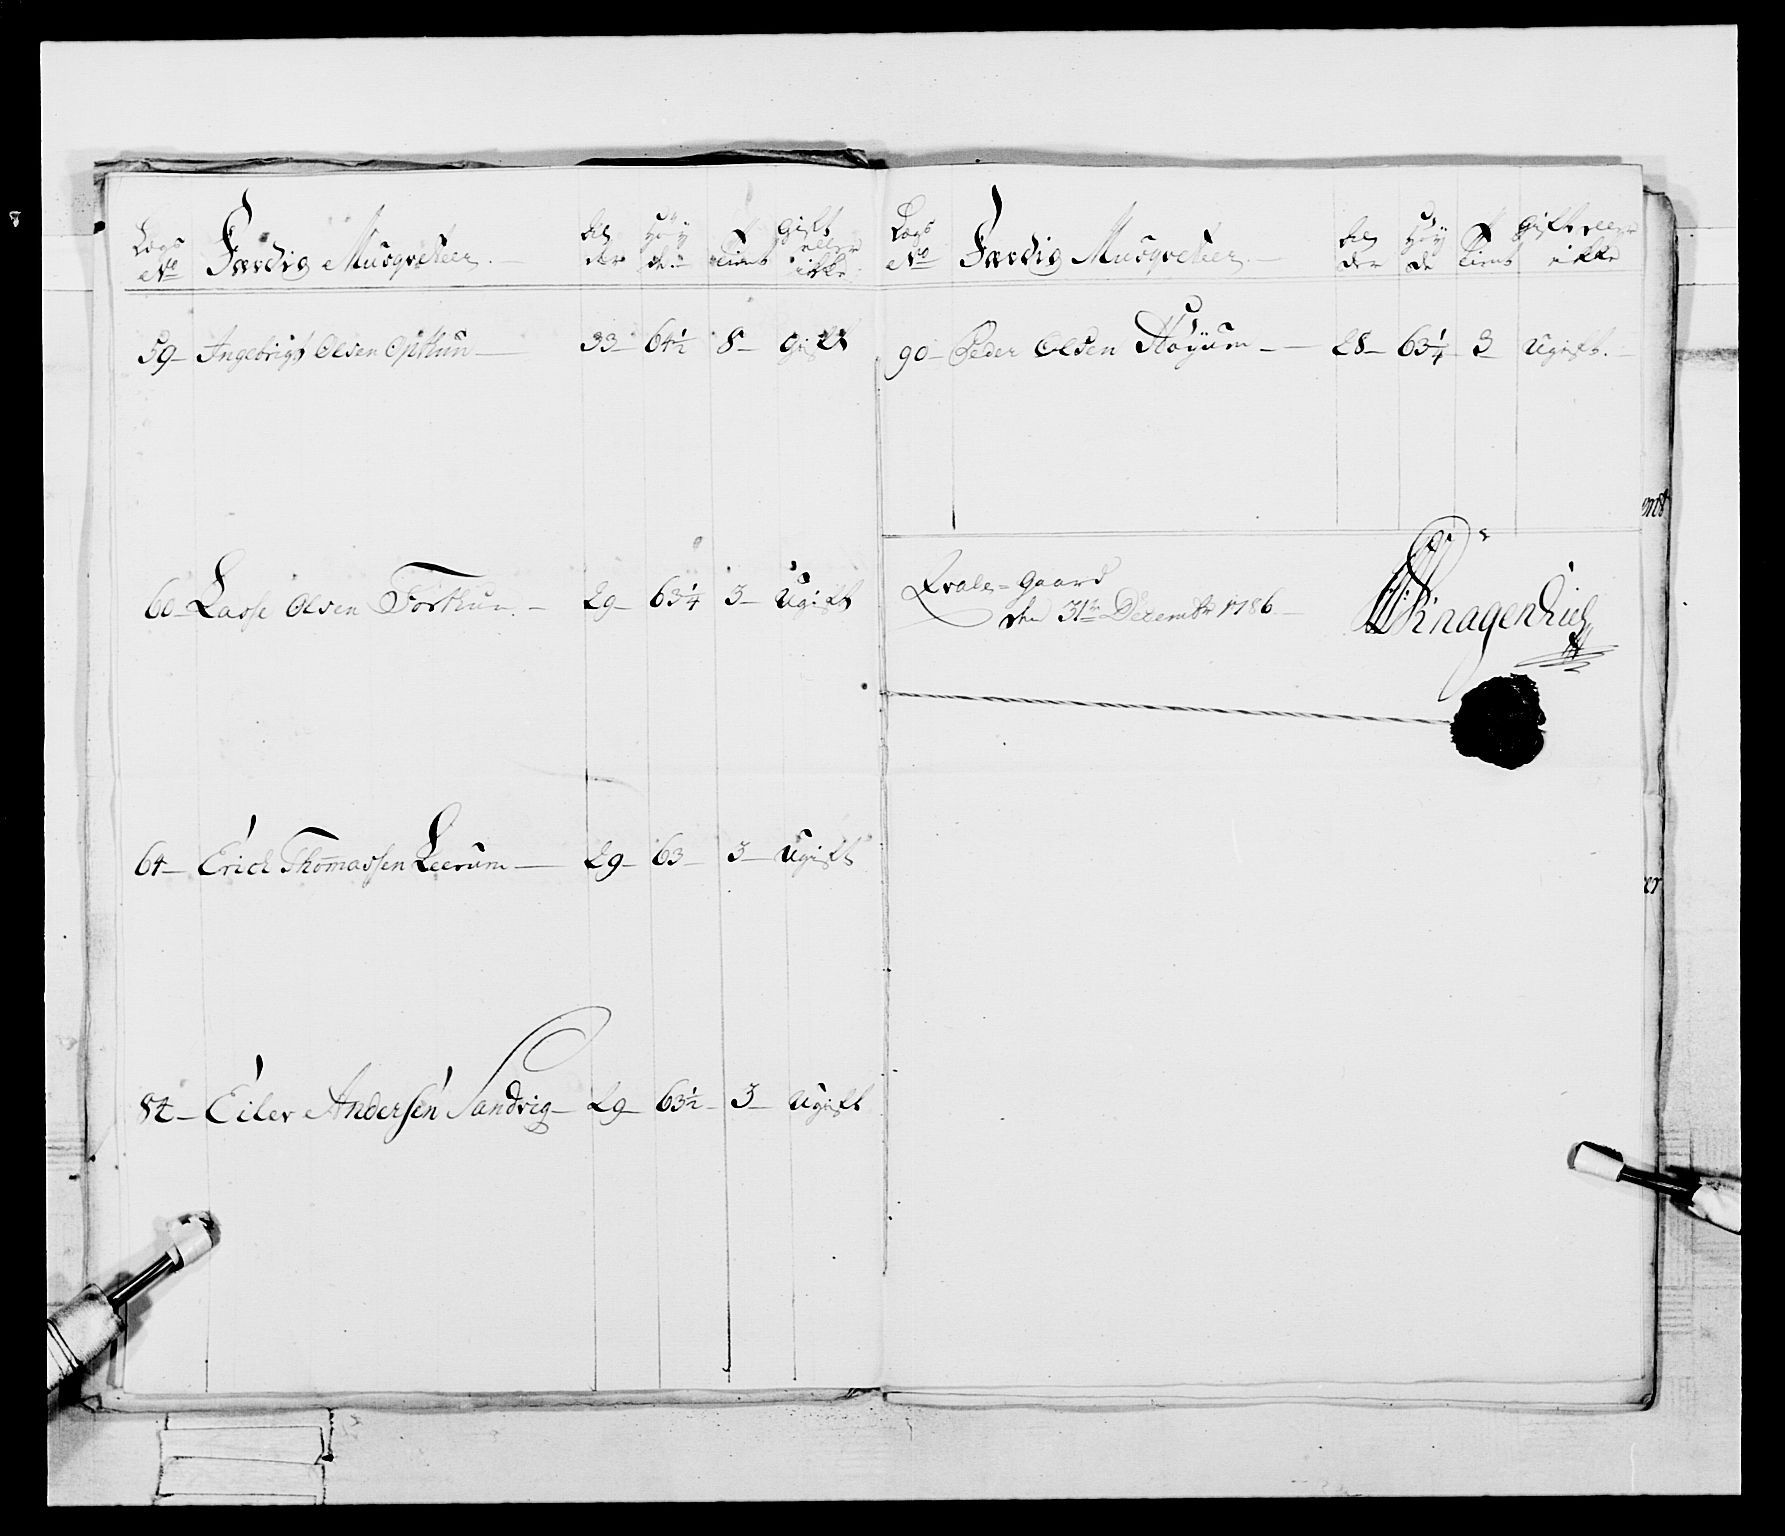 Lægs No Færdig Musqveteer. Alder Høyde Tient Gift eller ikke
59 Ingebrigt Olsen Opthun 33 64½ 8 Gift
60 Lasse Olsen Forthun. 29 63¼ 3 Ugift
64 Erich Thomassen Leerum 29 63 3 Ugift
84 Eiler Andersen Sandvig 29 63½ 3 Ugift
Lægs No Færdig Musqveteer. Alder Høyde Tient Gift eller ikke
90 Peder Olsen Høyum 28 63¼ 3 Ugift.
Qvale-Gaard
den 31te Decembr 1786.